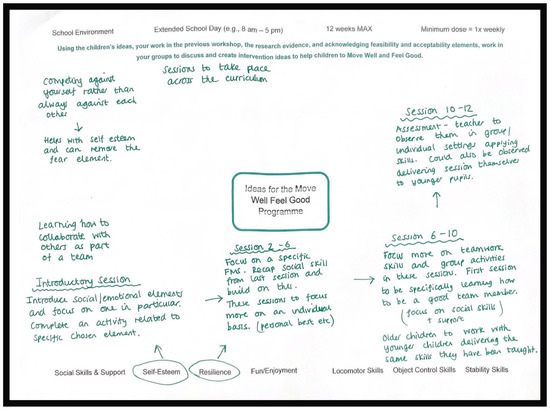 School Environment
Extended School Day (e.g., 8 am – 5 pm)
12 weeks MAX
Minimum dose = 1x weekly
Using the children's ideas, your work in the previous workshop, the research evidence, and acknowledging feasibility and acceptability elements, work in
your groups to discuss and create intervention ideas to help children to Move Well and Feel Good.
Competing against
yourself rather than
always against each
other
Helps with self esteem
and can remove the
fear element.
Sessions to take place
across the curriculum
Session 10-12
Assessment - teacher to
observe them in group/
individual settings applying
skills. Could also be observed
delivering session themselves
to younger pupils.
Ideas for the Move
Well Feel Good
Programme
Learning how to
collaborate with
others as part
of a team
Introductory Session
Introduce social/emotional elements
and focus on one in particular.
Complete an activity related to
specific chosen element.
Session 2-6
Focus on a specific
FMS. Recap social skill
from last session and
build on this.
These sessions to focus
more on an individual
basis. (personal best etc)
Session 6-10
Focus more on teamwork
skills and group activities
in these session. First session
to be specifically learning how
to be a good team member.
(focus on social skills)
+ support
Older children to work with
younger children delivering the
same skills they have been taught.
Social Skills & Support
Self-Esteem
Resilience
Fun/Enjoyment
Locomotor Skills
Object Control Skills
Stability Skills